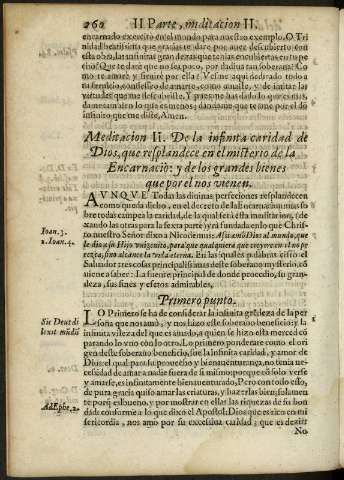 260 II Parte, meditacion II.
encarnado exercito en el mundo para nuestro exemplo. O Tri
nidad beatissima que gracias te dare por auer descubierto con
esta obra, las infinitas grandezas que tenias encubiertas en tu pe
cho? Que te daré que no sea poco, por dadiua tan soberana? Co
mo te amaré y seruiré por ella? Vesme aqui dedicado todo a
tu seruicio, con desseo de amarte, como amaste, y de imitar las
virtudes que nos descubriste. Y pues me has dado lo que es mas,
dame
Amen.
Meditacion Ii. De la infinita caridad de
Dios, que resplandece en el misterio de la
Encarnaciõ: y de los grandes bienes
que por el nos vienen.
AVNQVE Todas las diuinas perfeciones resplandecen
como queda dicho, en el decreto de la Encarnaciõ, mas so
bre todas campea la caridad, de la qual será esta meditaciõ, (de
xando las otras para la sexta parte) yrá fundada en lo que Chris-
Ioan. 3. to nuestro Señor dixo a Nicodemus: Assi amó Dios al mundo, que
1. Ioan. 4. le dio a su Hijo vnigenito, para que qualquiera que creyere en el no pe
rezca, sino alcance la vida eterna. En las quales palabras cifró el
Saluador tres cosas principalissimas deste soberano mysterio, cõ
uiene a saber: La fuente principal de donde procedio, su gran-
deza, sus fines y efetos admirables.
Primero punto.
LO Primero se ha de considerar la infinita grãdeza de la per
Sic Deus di sona que nos amó, y nos hizo este soberano beneficio; y la
lexit mũdũ infinita vileza del que es amado, a quien se hizo esta merced cõ
parando lo vno con lo otro. Lo primero ponderare como el ori
gen deste soberano beneficio, fue la infinita caridad, y amor de
Dios: el qual para su prouecho y bienauenturança, no tenia ne-
cessidad de amar a nadie fuera de si mismo: porque cõ solo verse
y amarse, es infinitamente bienauenturado. Pero con todo esso,
de pura gracia quiso amar las criaturas, y hazerlas bien, solamen
te porq̃ es bueno, y por mostrar en ellas las riquezas de su bon
Ad Ephe. 2. dad: conforme a lo que dixo el Apostol: Dios que es rico en mi
sericordia, nos amó por su excessiua caridad; que es dezir
No